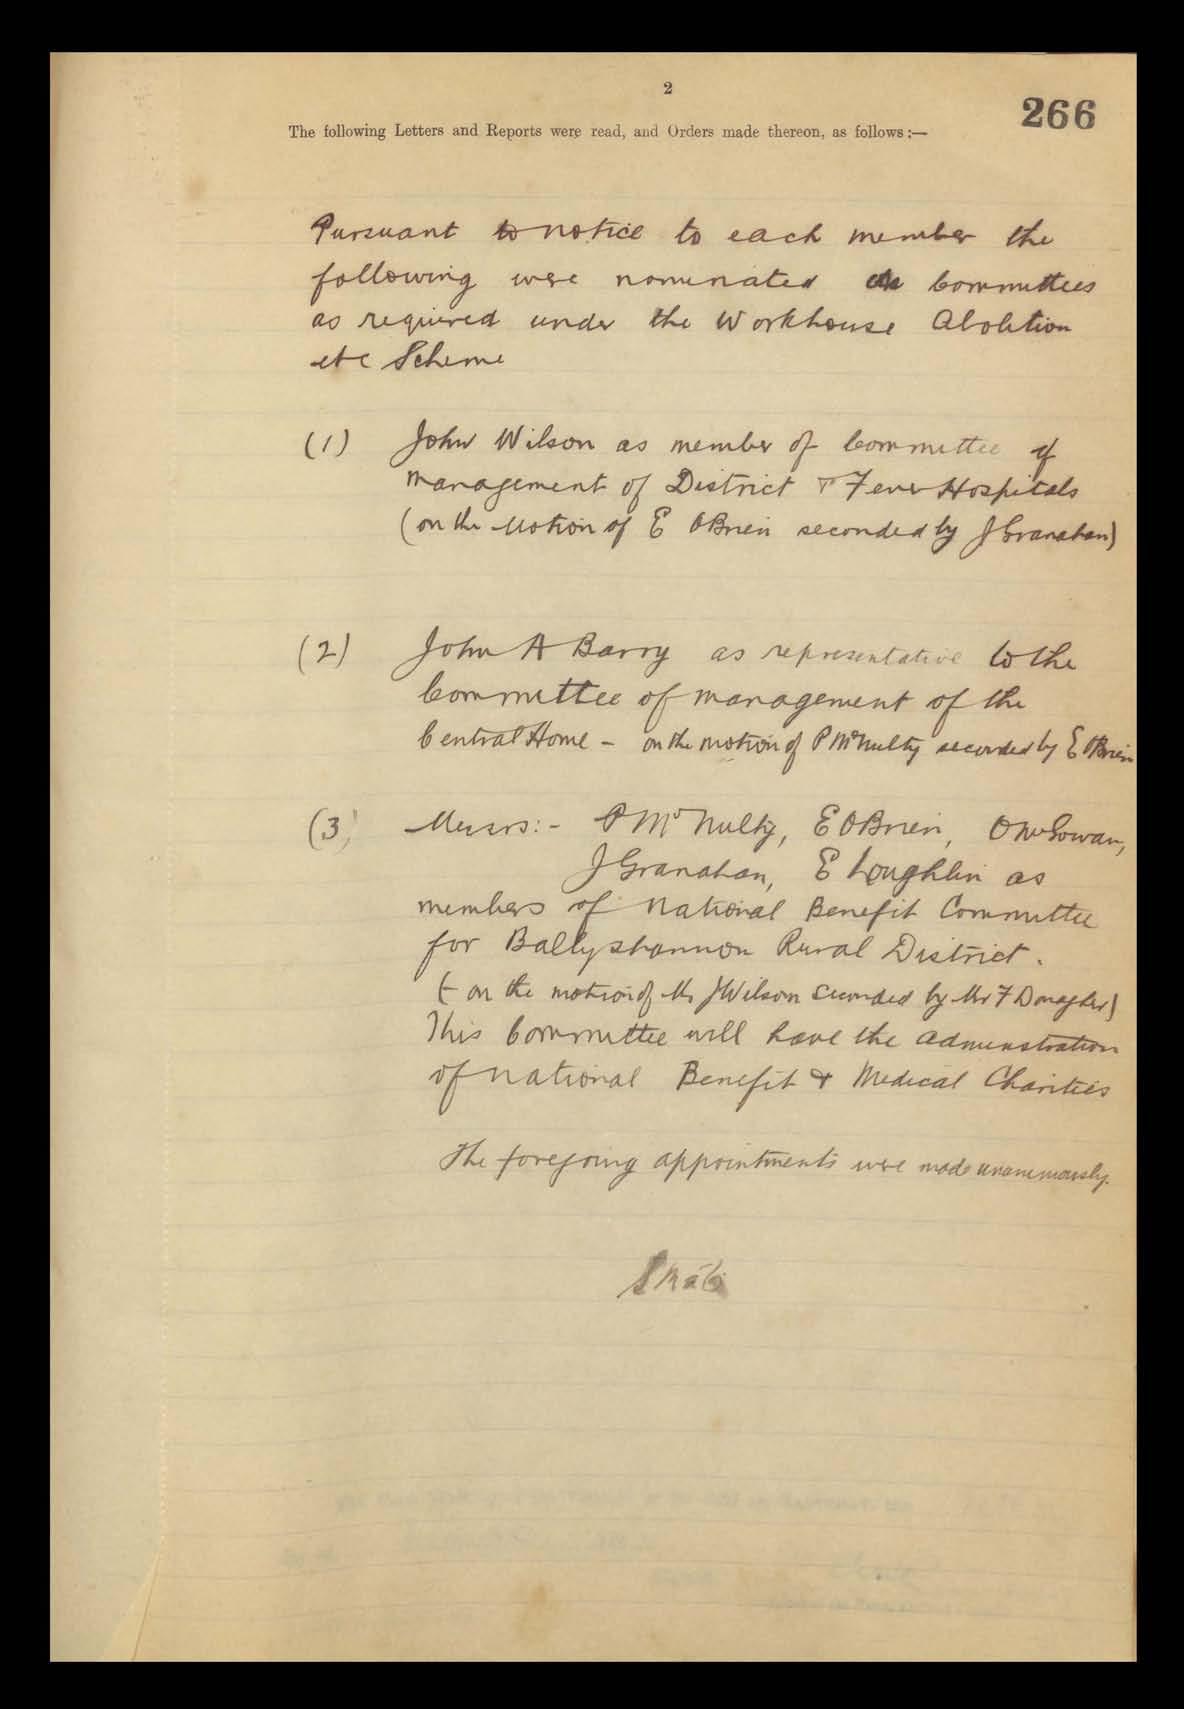 2
266
The following Letters and Reports were read, and Orders made thereon, as follows :—
Pursuant to notice to each member the
following were nominated on Committees
as required under the Workhouse Abolition
etc Scheme
(1) John Wilson as member of Committee of
management of District & Fever Hospitals
(on the Motion of E OBrien seconded by J Granahan)
(2) John A Barry as representative to the
Committee of management of the
Central Home - on the motion of P McNulty seconded by E OBrien
(3) Messrs:- P McNulty, E OBrien, O McGowan,
J Granahan, E Loughlin as
members of National Benefit Committee
for Ballyshannon Rural District.
(- on the motion of Mr J Wilson seconded by Mr F Donagher)
This Committee will have the administration
of National Benefit & Medical Charities
The foregoing appointments were made unanimously.